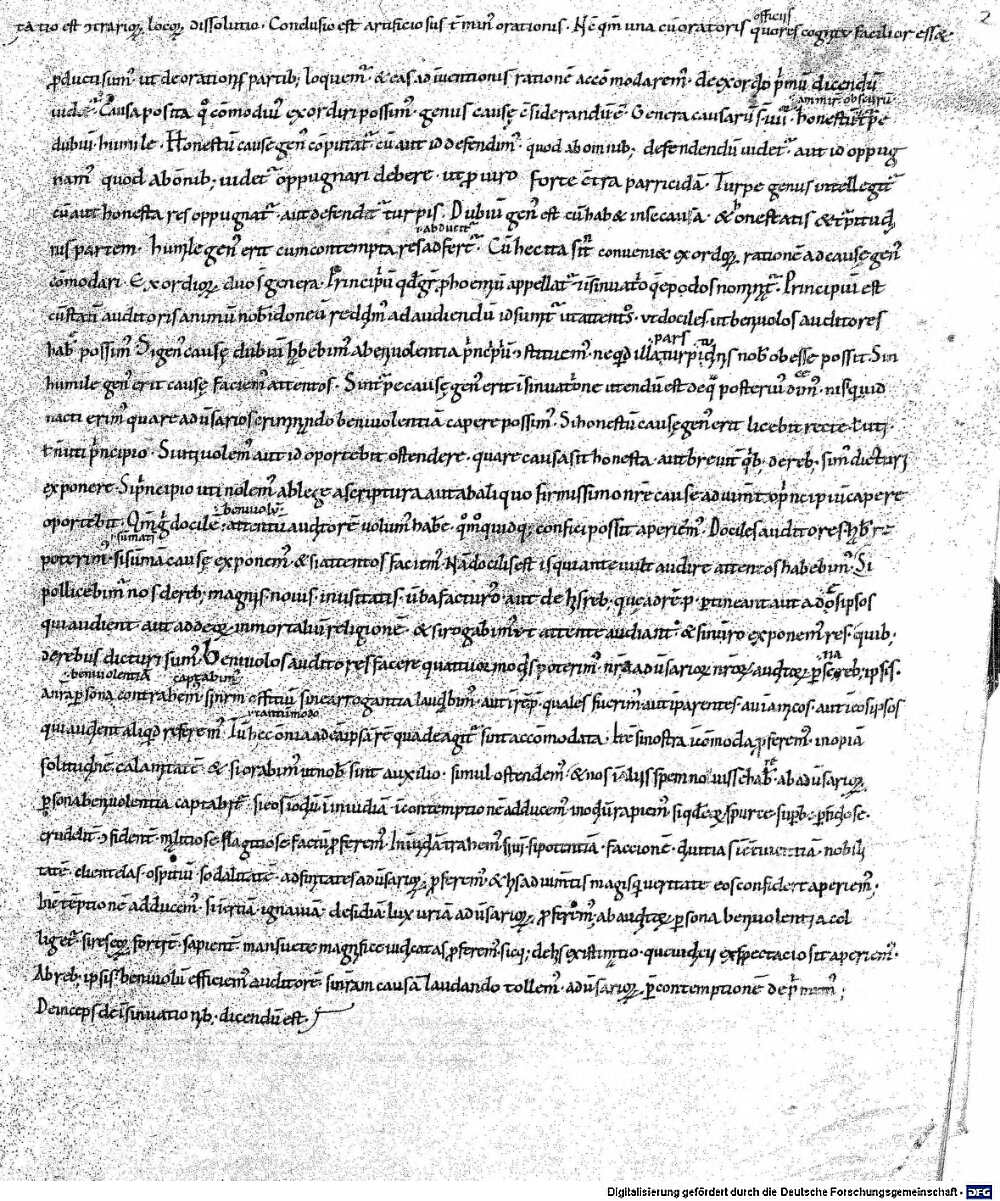 tatio est ɔtrarioꝝ locoꝝ dissolutio. Conclusio est artificiosus t̄minꝰ orationis. Nc̄ qm̄ una cū oratoris officiis quo res cognitu facilior ess&.
2
ꝓducti sumꝰ ut de orationis partib; loquemꝰ & eas ad inventionis rationē accōmodaremꝰ. de exordio p̄mū dicendū
uidet᷑. Causa posita qͦ cōmodiꝰ exordiri possimꝰ. genus causę c̄siderandū ē. Genera causarū s̄ .iiii. honestū turpe
ammir obscurū
dubiū humile. Honestū cause genꝰ cōputat᷑ cū aut id defendimꝰ quod ab omnib; defendendū uidet᷑ aut id oppug
namꝰ quod ab ōnib; uidet᷑ oppugnari debere. ut ꝓ uiro forte c̄tra parricidā. Turpe genus intellegit᷑
cū aut honesta res oppugnat᷑. aut defendit᷑ turpis. Dubiū genꝰ est cū hab& in se causa & honestatis & t᷑pitudi
nis partem. humile genꝰ erit cum contempta res adfert᷑. Cū hec ita sīt conueni& exordioꝝ rationē ad cause genꝰ
.i. abducit᷑
cōmodari. Exordioꝝ duo s̄ genera. Principiū qd̄ gr̄ prhoemiū appellat᷑ & insinuatio quę epodos nominat᷑. Principiū est
cū statī auditoris animū nob̄ idoneū reddimꝰ ad audiendū id sumit᷑ ut attentos. ut dociles ut beniuolos auditores
hab̄ possimꝰ. Si genꝰ causę dubiū hēbimꝰ a beniuolentia p̄ncipiū ɔstituemꝰ ne qd̄ illa turpitudinis pars nob̄ obesse possit. Sin
humile genꝰ erit causę faciemꝰ attentos. Sin t᷑pe causę genꝰ erit insinuatione utendū est de qͣ posterius dicemꝰ. nisi quid
nacti erimꝰ quare aduersarios criminando beniuolentiā capere possimꝰ. Si honestū causę genꝰ erit licebit recte ł uti.
ł n̄ uti p̄ncipio. Si uti uolemꝰ aut id oportebit ostendere. quare causa sit honesta. aut breuit᷑ qͥb; de reb; simꝰ dicturi
exponere. Si p̄ncipio uti nolemꝰ ab lege a scriptura aut ab aliquo firmissimo nr̄e cause adiumto p̄ncipiū capere
oportebit. Qm̄ g̊ docilē attentū auditorē uolumꝰ habē. qͦmodo quidq; confici possit aperiemꝰ. Dociles auditores hab̄
beniuolū
poterimꝰ. si sūmā causę exponemꝰ & si attentos faciemꝰ. Nā docilis est is qui ante uult audire. attentos habebimꝰ. Si
sūmati
pollicebimꝰ nos de reb; magnis. nouis inusitatis uerba facturos. aut de his reb; que ad rē .p. ꝑtineant aut ad eos ipsos
qui audient aut ad deoꝝ inmortaliū religionē. & si rogabimꝰ ut attente audiant. & si nūero exponemꝰ res. quib;
de rebus dicturi sumꝰ. Beniuolos auditores facere quatuor modis poterimꝰ. nr̄a aduersarioꝝ nr̄oꝝ auditoꝝ ꝑsona & reb; ipsis.
A nr̄a ꝑsona beniuolentiā contrahemꝰ si nr̄m officiū sine arrogantia laudabimꝰ. aut ī rēp. quales fuerimꝰ aut ī parentes. aut ī amicos. aut ī eos ipsos
captabimꝰ
qui audient aliqd̄ referemꝰ. Tū hec ōnia ad eā ipsā rē qua de agit᷑ sint accōmodata.
.i. tantūmodo
solitudinē calamitatē. & si orabimꝰ ut nob̄ sint auxilio. simul ostendemꝰ & nos ī aliis spem noluisse habere. ab aduersarioꝝ
ꝑsona beniuolentia captabit᷑. si eos ī odiū ī inuidiā ī contemptionē adducemꝰ. in odiū rapiemꝰ. si qd̄ eoꝝ spurce supbe ꝑfidiose.
crudelit᷑ ɔfident᷑ malitiose flagitiose factū ꝓferemꝰ. In inuidiā trahemꝰ si uī si potentiā. faccionē. diuitias nobili
tatē. clientelas. ospitiū sodalitatē. adfinitates aduersarioꝝ ꝓferemꝰ. & his adiumtis magis quā ueritate eos confidere aperiemꝰ;
In c̄teptionē adducemꝰ si inertiā. ignauiā. desidiā luxuriā aduersarioꝝ ꝓferemꝰ. ab auditoꝝ ꝑsona beniuolentia col
liget᷑. si res eoꝝ fortit᷑. sapient᷑ mansuete magnifice iudicatas ꝓferemꝰ. que iudicii exspectacio sit aperiemꝰ.
Ab reb; ipsis beniuolū efficiemꝰ auditorē. si nr̄am causā laudando tollemꝰ. aduersarioꝝ ꝑ contemptionē dep̄mimꝰ;
Deinceps de insinuationib; dicendū est.
Digitalisierung gefördert durch die Deutsche Forschungsgemeinschaft - DFG